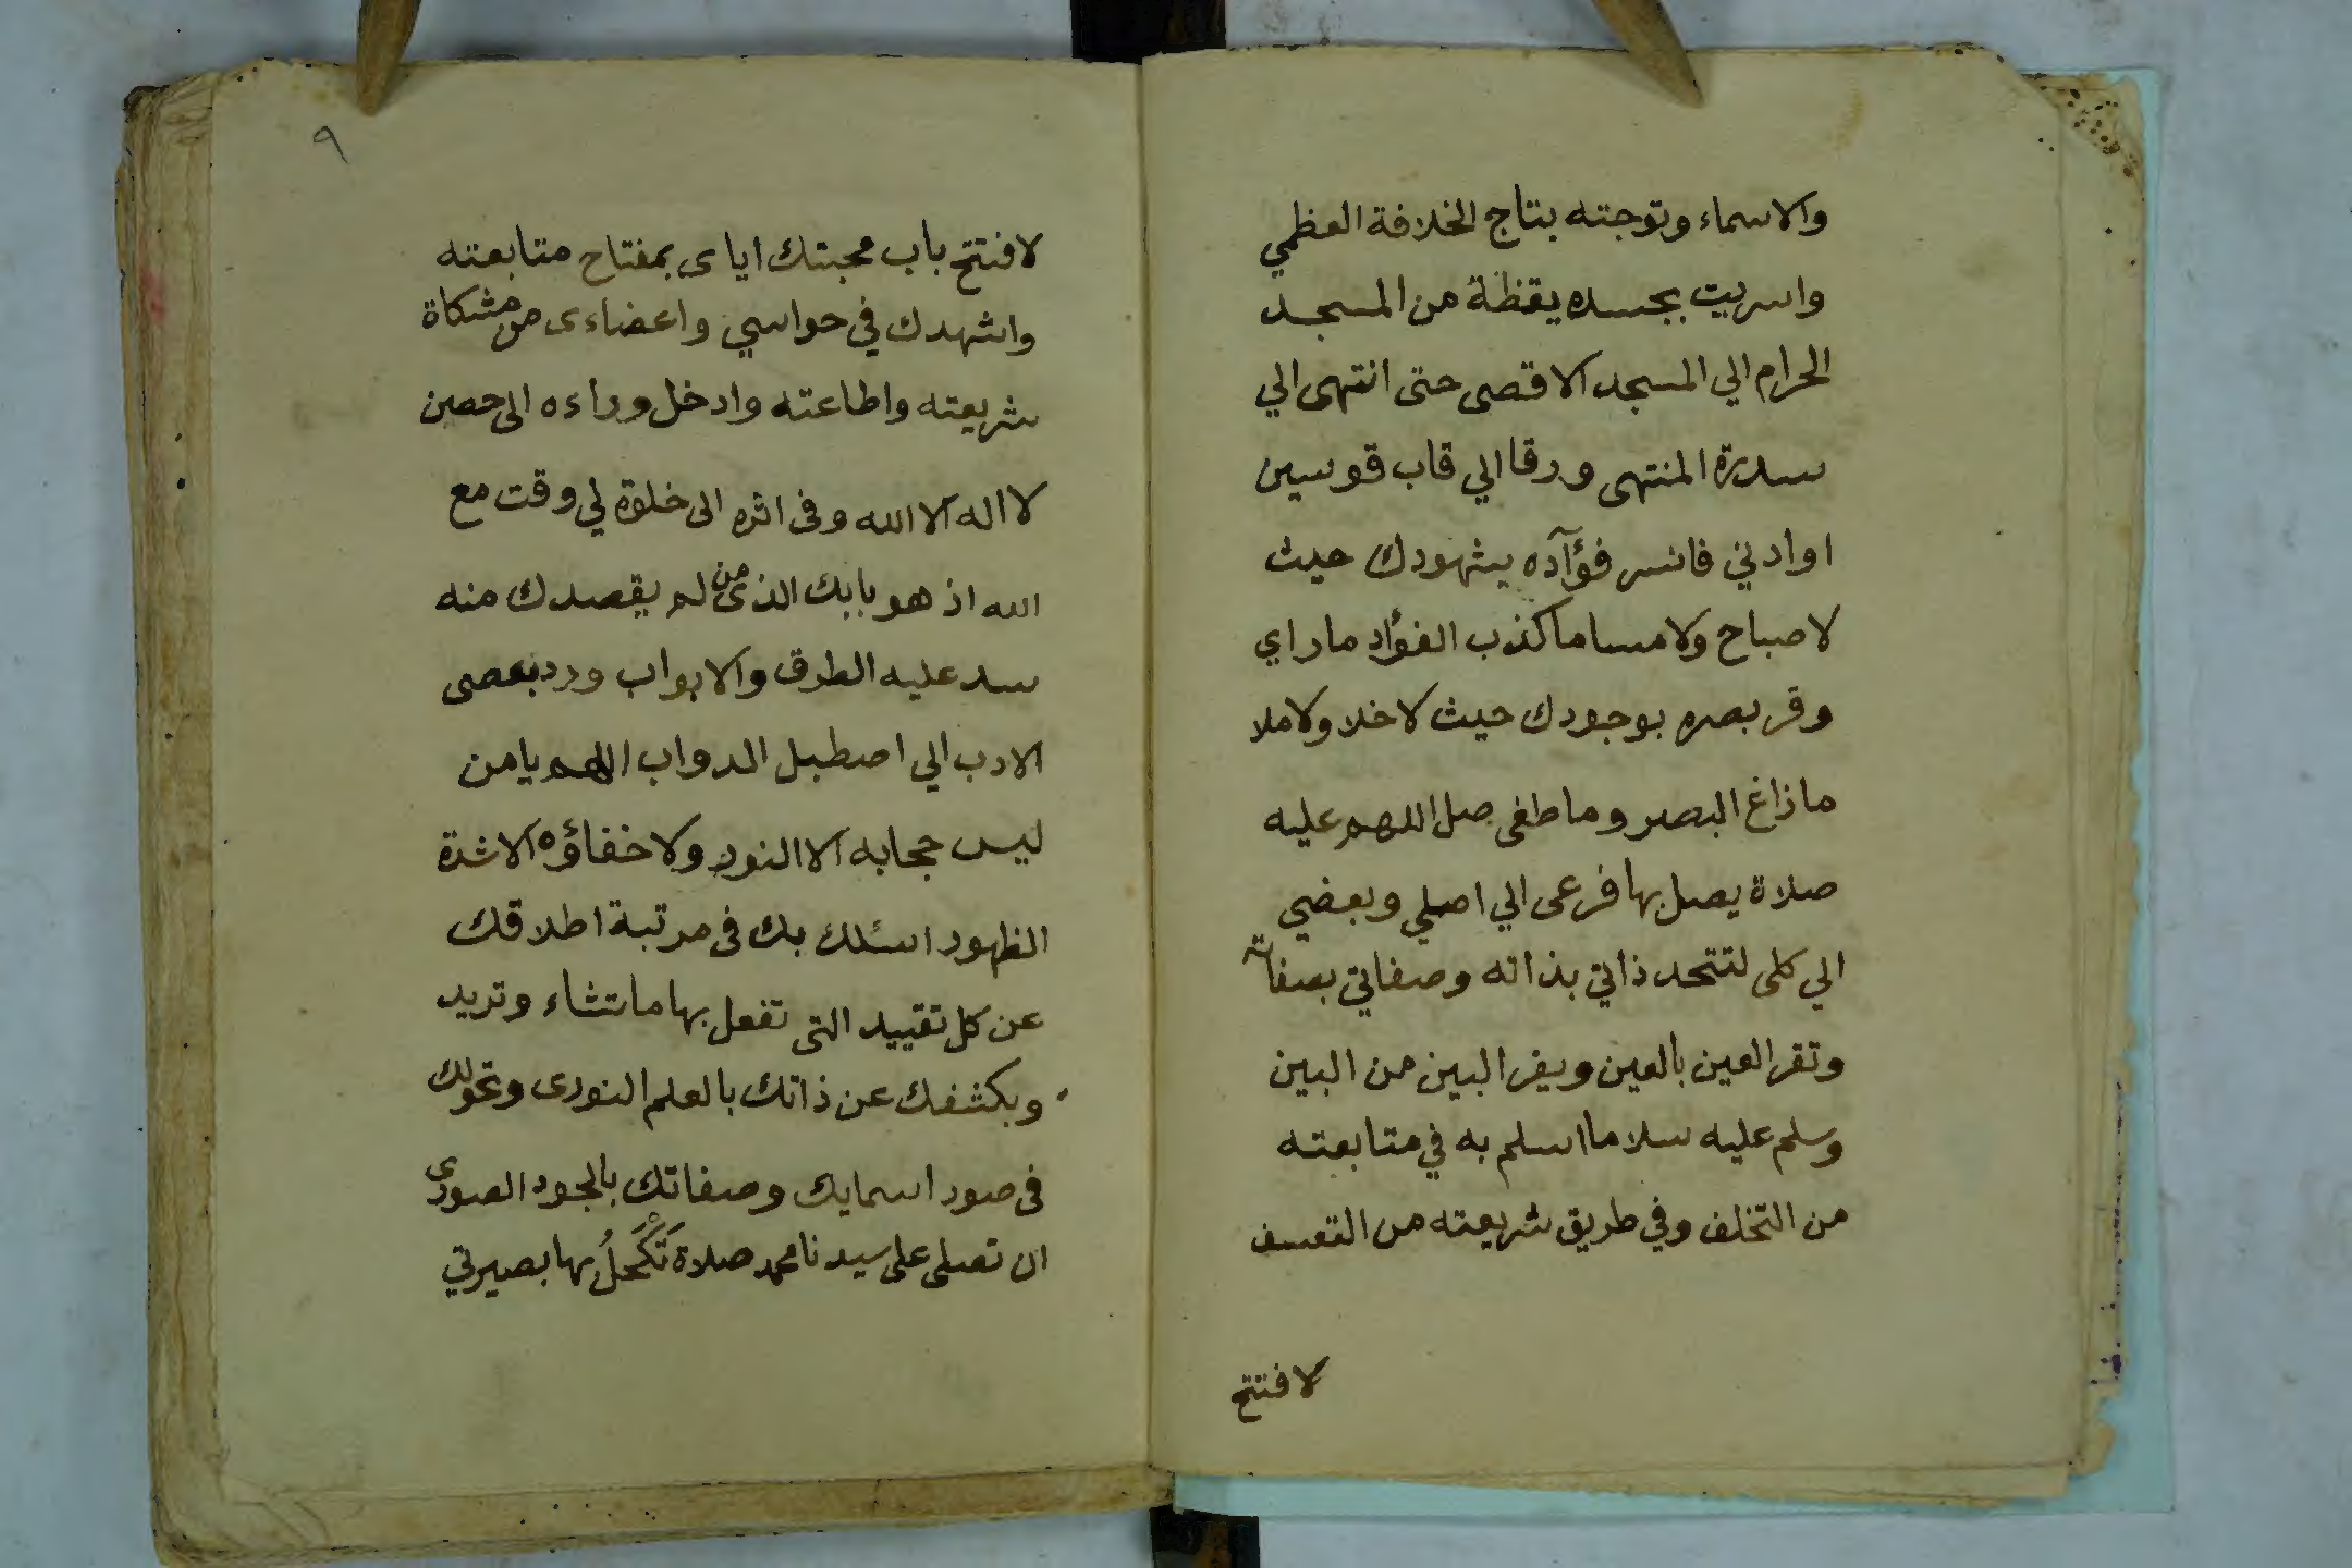 والاسماء وتوجته بتاج الخلافة العظمي
واسريت بجسده يقظة من المسجد
الحرام الي المسجد الاقصى حتى انتهى الي
سدرة المنتهى ورقا الي قاب قوسين
او ادني فانسر فؤآده بشهودك حيث
لا صباح ولا مسا ما كذب الفؤاد ما راي
وقر بصره بوجودك حيث لا خلا ولا ملا
ما زاغ البصر وما طغى صل اللهم عليه
صلاة يصل بها فرعى الي اصلي وبعضي
الي كلى لتتحد ذاتي بذاته وصفاتي بصفاته
وتقر العين بالعين ويفر البين من البين
وسلم عليه سلاما اسلم به في متابعته
من التخلف وفي طريق شريعته من التعسف
لافتتح
٩
لافتتح باب محبتك اياى بمفتاح متابعته
واشهدك في حواسي واعضاءى من مشكاة
شريعته واطاعته وادخل وراءه الى حصن
لا اله الا الله وفى اثره الى خلوة لي وقت مع
الله اذ هو بابك الذى من لم يقصدك منه
سد عليه الطرق والابواب ورد بعصى
الادب الي اصطبل الدواب اللهم يا من
ليس حجابه الا النور ولا خفاؤه الا شدة
الظهور اسئلك بك فى مرتبة اطلاقك
عن كل تقييد التى تفعل بها ما تشاء وتريد
وبكشفك عن ذاتك بالعلم النورى وتحولك
فى صور اسمايك وصفاتك بالجود الصورى
ان تصلى على سيدنا محمد صلاة تَكْحَلُ بها بصيرتي